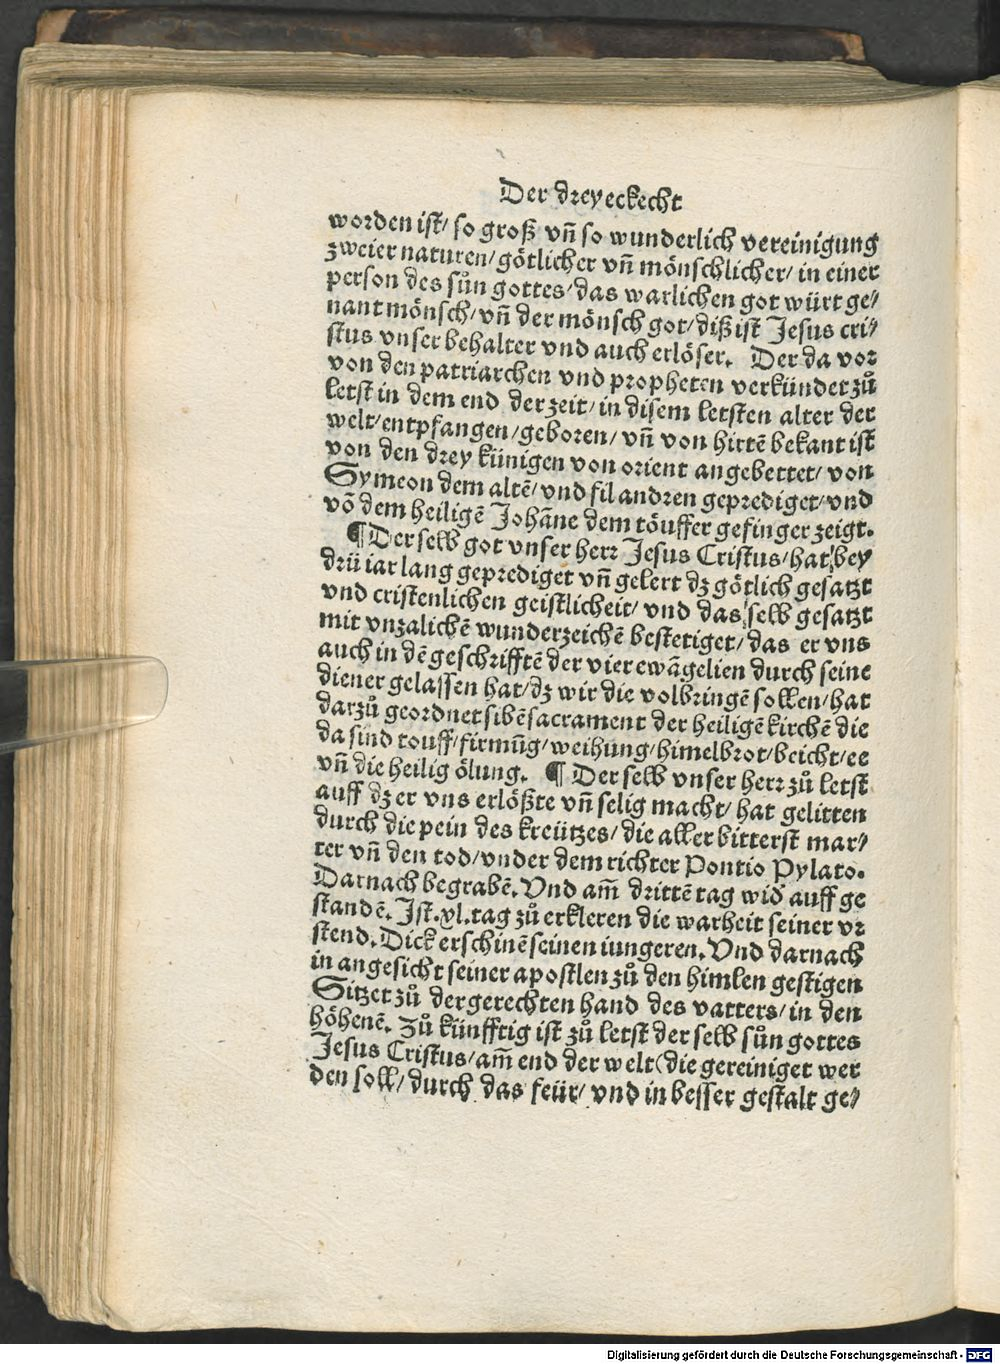 Der dreyeckecht
worden ist/ so groß vñ so wunderlich vereinigung
zweier naturen/ götlicher vñ mönschlicher/ in einer
person des sůn gottes/ das warlichen got würt ge/
nant mönsch/ vñ der mönsch got/ diß ist Jesus cri/
stus vnser behalter vnd auch erlöser. Der da vor
von den patriarchen vnd propheten verkündet zů
letst in dem end der zeit/ in disem letsten alter der
welt/ entpfangen/ geboren/ vñ von hirtē bekant ist
von den drey künigen von orient angebettet/ von
Symeon dem altē/ vnd fil andren geprediget/ vnd
vō dem heiligē Johāne dem töuffer gefinger zeigt.
¶ Der selb got vnser herr Jesus Cristus/ hat bey
drü iar lang geprediget vñ gelert dz götlich gesatzt
vnd cristenlichen geistlicheit/ vnd das selb gesatzt
mit vnzalichē wunderzeichē bestetiget/ das er vns
auch in dē geschrifftē der vier ewāgelien durch seine
diener gelassen hat/ dz wir die volbringē sollen/ hat
darzů geordnet sibē sacrament der heiligē kirchē die
da sind touff/ firmūg/ weihung/ himelbrot/ beicht/ ee
vñ die heilig ölung. ¶ Der selb vnser herr zů letst
auff dz er vns erlößte vñ selig macht/ hat gelitten
durch die pein des kreützes/ die aller bitterst mar/
ter vñ den tod/ vnder dem richter Pontio Pylato.
Darnach begrabē. Vnd am̄ drittē tag wid' auff ge
standē. Jst .xl. tag zů erkleren die warheit seiner vr
stend. Dick erschinē seinen iungeren. Vnd darnach
in angesicht seiner apostlen zů den himlen gestigen
Sitzet zů der gerechten hand des vatters/ in den
höhenē. Zů künfftig ist zů letst der selb sůn gottes
Jesus Cristus/ am̄ end der welt (die gereiniget wer
den soll/ durch das feür/ vnd in besser gestalt ge/
Digitalisierung gefördert durch die Deutsche Forschungsgemeinschaft - DFG